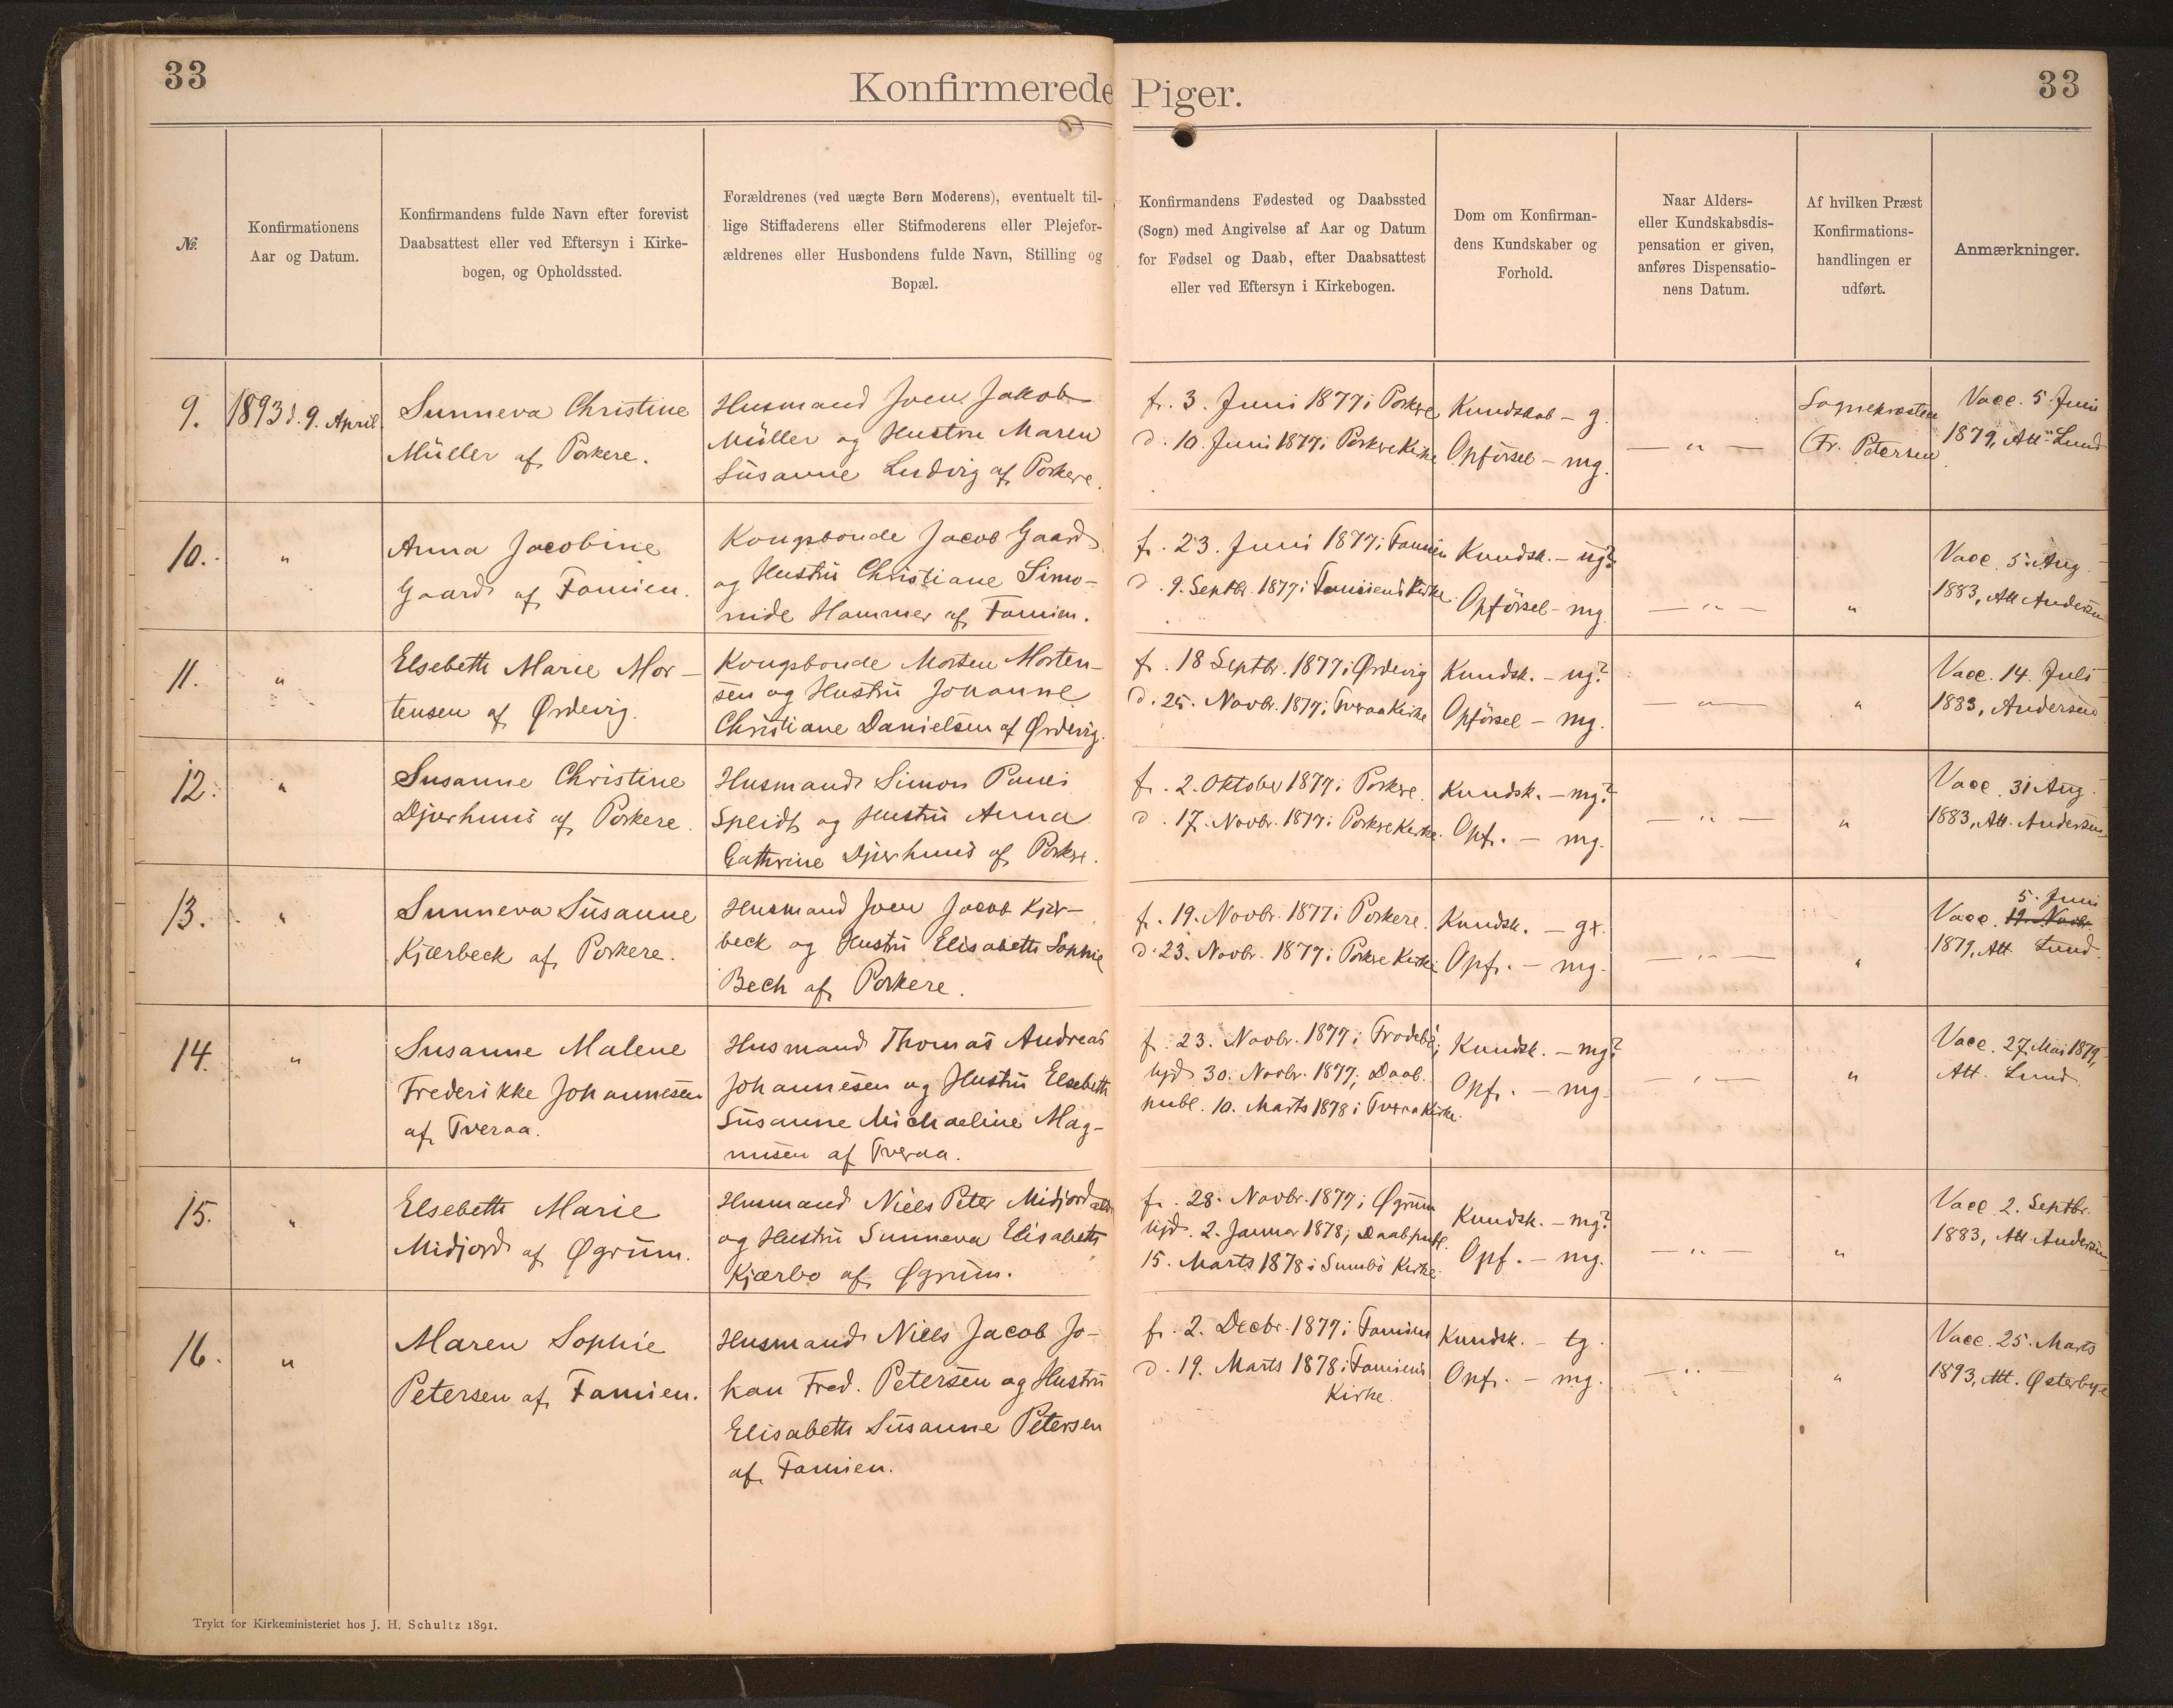 33
Konfirmerede Piger.
33
№.
Konfirmationens
Aar og Datum.
Konfirmandens fulde Navn efter forevist
Daabsattest eller ved Eftersyn i Kirke-
bogen, og Opholdssted.
Forældrenes (ved uægte Børn Moderens), eventuelt til-
lige Stiffaderens eller Stifmoderens eller Plejefor-
ældrenes eller Husbondens fulde Navn, Stilling og
Bopæl.
Konfirmandens Fødested og Daabssted
(Sogn) med Angivelse af Aar og Datum
for Fødsel og Daab, efter Daabsattest
eller ved Eftersyn i Kirkebogen.
Dom om Konfirman-
dens Kundskaber og
Forhold.
Naar Alders-
eller Kundskabsdis-
pensation er given,
anføres Dispensatio-
nens Datum.
Af hvilken Præst
Konfirmations-
handlingen er
udført.
Anmærkninger.
9.
1893 d. 9. April
Sunneva Christine
Müller af Porkere.
Husmand Joen Jakob
Müller og Hustru Maren
Susanne Ludvig af Porkere.
f. 3. Juni 1877 i Porkere
d. 10. Juni 1877 i Porkere Kirke
Kundskab - g.
Opførsel - mg.
— " —
Sognepræsten
Fr. Petersen
Vacc. 5. Juni
1879, Att. Lund
10.
"
Anna Jacobine
Gaard af Famien.
Kongsbonde Jacob Gaard
og Hustru Christiane Simo-
nide Hammer af Famien.
f. 23. Juni 1877 i Famien
d. 9. Septbr. 1877 i Famiens Kirke
Kundsk. - ug?
Opførsel - mg.
— " —
"
Vacc. 5. Aug.
1883, Att Andersen
11.
"
Elsebeth Marie Mor-
tensen af Ørdevig.
Kongsbonde Morten Morten-
sen og Hustru Johanne
Christiane Danielsen af Ørdevig.
f. 18 Septbr. 1877 i Ørdevig
d. 25. Novbr. 1877 i Tveraa Kirke
Kundsk. - ug?
Opførsel - mg.
— " —
"
Vacc. 14. Juli
1883, Andersen
12.
"
Susanne Christine
Djurhuus af Porkere.
Husmand Simon Pauli
Speidt og Hustru Anna
Cathrine Djurhuus af Porkere.
f. 2. Oktober 1877 i Porkere.
d. 17. Novbr. 1877 i Porkere Kirke.
Kundsk. - mg?
Opf. - mg.
— " —
"
Vacc. 31 Aug.
1883, Att. Andersen
13.
"
Sunneva Susanne
Kjærbeck af Porkere.
Husmand Joen Jacob Kjær-
beck og Hustru Elisabeth Sophie
Bech af Porkere.
f. 19. Novbr. 1877 i Porkere.
d. 23. Novbr. 1877 i Porkere Kirke
Kundsk. - g+.
Opf. - mg.
— " —
"
5. Juni
Vacc. 19. Novbr
1879, Att Lund.
14.
"
Susanne Malene
Frederikke Johannesen
af Tveraa.
Husmand Thomas Andreas
Johannesen og Hustru Elsebeth
Susanne Michaeline Mag-
nusen af Tveraa.
f. 23. Novbr. 1877 i Frodebø,
hjd 30. Novbr. 1877, Daab.
publ. 10. Marts 1878 i Tveraa Kirke.
Kundsk. - mg?
Opf. - mg.
— " —
"
Vacc. 27. Mai 1879,
Att. Lund.
15.
"
Elsebeth Marie
Midjord af Øgrum.
Husmand Niels Peter Midjord
og Hustru Sunneva Elisabeth
Kjærbo af Øgrum.
f. 28. Novbr. 1877 i Øgrum
hjd. 2. Januar 1878, Daab publ.
15. Marts 1878 i Sumbø Kirke
Kundsk. - mg?
Opf. - mg.
— " —
"
Vacc 2. Septbr.
1883, Att Andersen
16.
"
Maren Sophie
Petersen af Famien.
Husmand Niels Jacob Jo-
han Fred. Petersen og Hustru
Elisabeth Susanne Petersen
af Famien.
f. 2. Decbr. 1877 i Famien
d. 19. Marts 1878 i Famiens
Kirke.
Kundsk. - tg.
Opf. - mg.
— "
"
Vacc. 25. Marts
1893, Att. Østerbye
Trykt for Kirkeministeriet hos J. H. Schultz 1891.